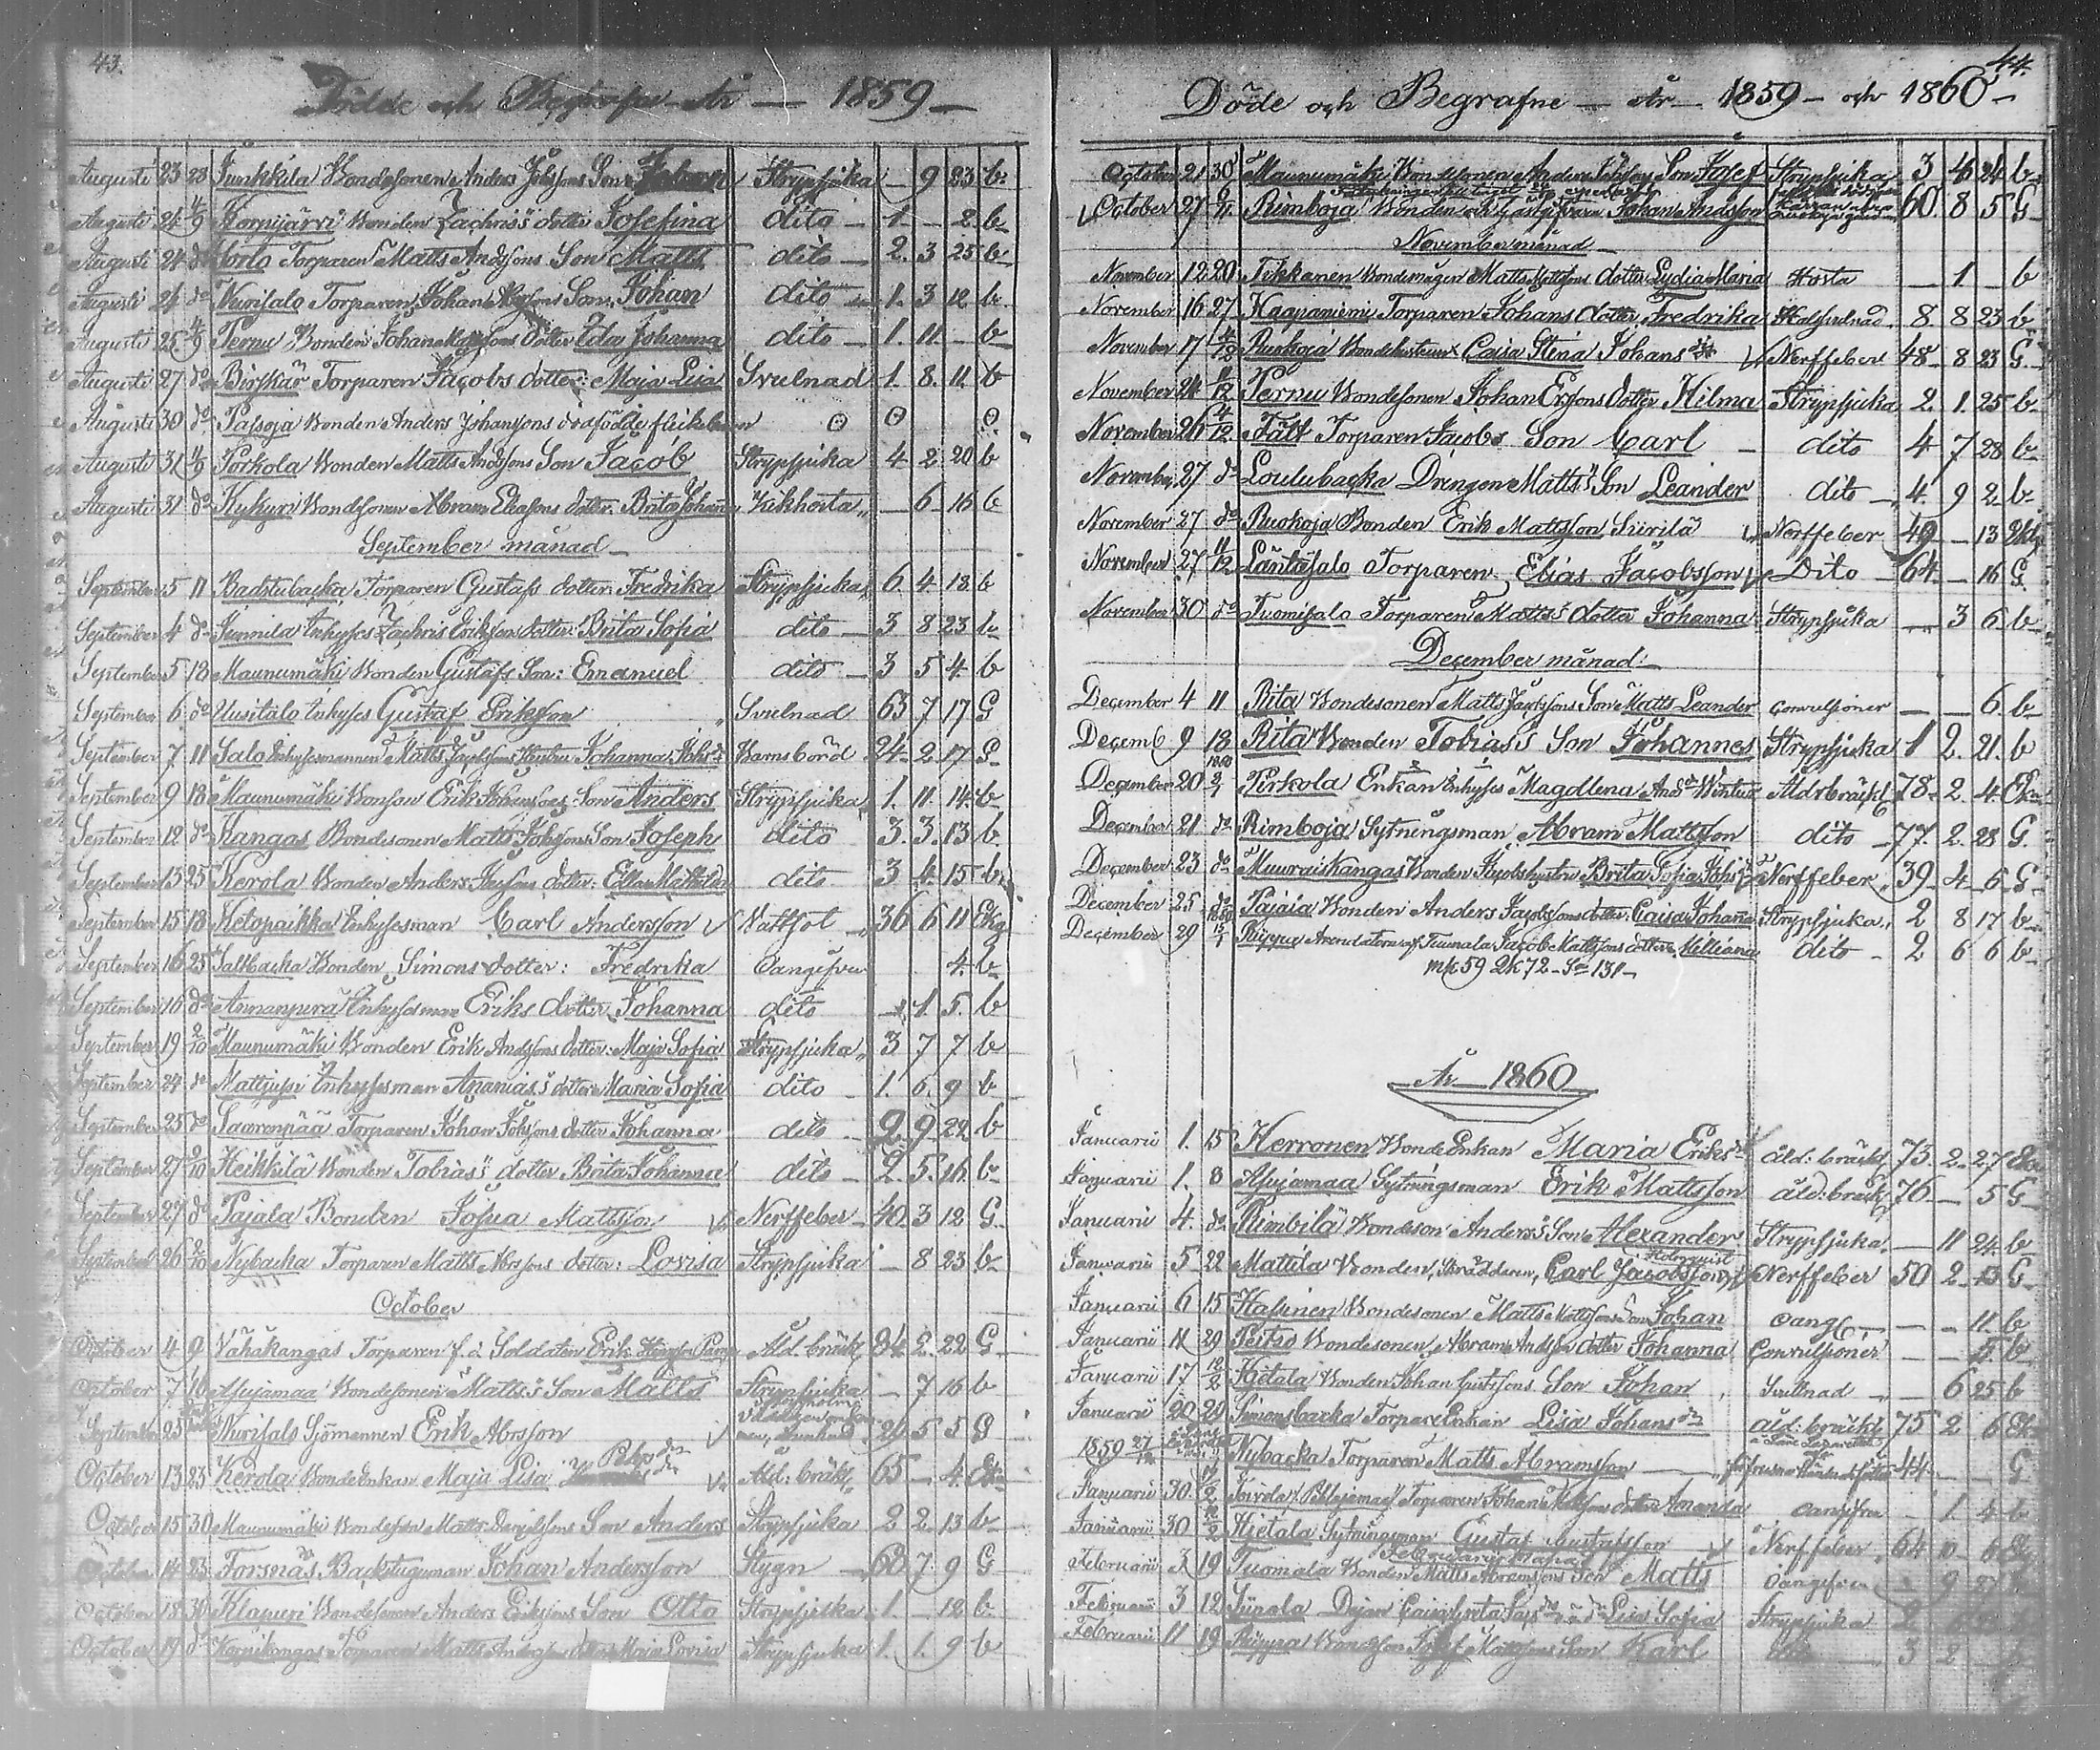 43.
Dödde och Begrafne År — 1859 —
Augusti 23 28 Junkkila Bondesonen Anders Johssons Son Strypsjuka — 9 23 b.
Augusti 24 4/9 Korpijärvi Bonden Zachris's dotter Josefina dito — 1 — 2 b
Augusti 24 do Torparen Matts Andssons Son Matts dito — 2. 3 25 b
Augusti 24 do Nurisalo Torparen Johan Son Johan dito — 1. 3 12 b.
Augusti 25 4/9 Pernu Bonden Johan Mattssons dotter Ida Johanna dito — 1. 11 — b
Augusti 27 do Björskär Torparen Jacobs dotter: Maja Lisa Svulnad 1. 8. 11. b
Augusti 30 do Passoja Bonden Anders Johanssons dödfödde flickebarn 0 0 0.
Augusti 31 4/9 Porkola Bonden Matts Andssons Son Jacob Strypsjuka 4 2 20 b
Augusti 31 do Kykyri Bondsonen Abram Eliassons dotter Brita Johanna Kikhosta — 6 16 b
September månad —
September 5 11 Badstubacka Torparen Gustafs dotter Fredrika Strypsjuka 6. 4. 13. b
September 4 do Junnila Inhyses Zachris Erikssons dotter: Brita Sofia dito — 3 8 23 b
September 5 18 Maunumäki Bonden Gustafs Son: Emanuel dito — 3 5 4. b
September 6 do Uusitalo Inhyses Gustaf Eriksson Svulnad 63 7 17 G
September 7 11 Salo Inhysesmannen Matts Jacobssons Hustru Johanna Barnsbörd 24 2 17 G
September 9 18 Maunumäki Bonson Erik Johanssons Son Anders Strypsjuka 1. 11. 14 b
September 12 do Kangas Bondesonen Matts Johssons Son Joseph dito 3. 3. 13 b.
September 13 25 Kerola Bonden Anders dotter: Ella Mathilda dito 3 4 15 b
September 15 18 Hetopaikka Inhysesman Carl Andersson Nattsot 36 6 11 Ekg
September 16 25 Saltbacka Bonden Simons dotter: Fredrika Oangifven 4. b
September 16 do Annanperä Inhysesman Eriks dotter Johanna dito — 1. 5. b
September 19 2/10 Maunumäki Bonden Erik Andssons dotter: Maja Sofia Strypsjuka 3 7 7 b
September 24 do Mattjussi Inhysesman Ananias's dotter Maria Sofia dito 1. 6. 9 b
September 25 do Saarenpää Torparen Johan Johssons dotter Johanna dito 2 9 22 b
September 27 2/10 Heikkilä Bonden Tobias's dotter Brita Johanna dito — 2. 5. 16 b
September 27 do Pajala Bonden Josua Mattsson Nerffeber 40. 3 12 G
September 26 2/10 Nybacka Torparen Matts Abrssons dotter: Lovisa Strypsjuka — 8 23 b
October
October 4 9 Vähäkangas Torparen f. d. Soldaten Erik Åld. bräkl 84 2 22 G
October 7 16 Asujamaa Bondesonen Matts's Son Matts Strypsjuka — 7 16 b
September 25 Nurisalo Sjömannen Erik Abrsson 29 5 5 G
October 13 23 Kerola Bondeenkan Maja Lisa Åld: bräkl. 65 — 4.
October 15 30 Maunumäki Bondeson Matts Son Anders Strypsjuka 2 2 13 b
October 14 23 Forsnäs Backstuguman Johan Andersson Stygn 60 7 9 G
October 18 30 Klapuri Bondesonen Anders Erikssons Son Otto Strypsjuka 1 — 12 b
October 19 do Torparen Matts dotter Maja Lovisa Strypsjuka 1. 1. 9 b
44.
Döde och Begrafne — År — 1859 — och 1860 —
October 21 30 Maunumäki Bondesonen Anders Son Josef Strypsjuka 3 4 24 b
October 27 6/11 Rimboja Bonden Johan Andsson 60. 8 5 G
November månad —
November 12 20 Tikkanen Bondemågen Matts Mattssons dotter Lydia Maria Hosta — 1 — b
November 16 27 Haapaniemi Torparen Johans dotter Fredrika Halssvulnad 8. 8 23 b
November 17 4/12 Ruokoja Bondehustrun Caisa Stena Johans dtr Nerffeber 48 8 23 G
November 24 4/12 Pernu Bondesonen Johan Erssons dotter Hilma Strypsjuka 2. 1. 25 b
November 26 4/12 Fält Torparen Jacobs Son Carl — dito 4 7 28 b
November 27 do Loulubacka Drengen Matts's Son Leander dito — 4. 9 2 b
November 27 do Ruokoja Bonden Erik Mattsson Siirilä Nerffeber 49 — 13
November 27 11/12 Läntäsalo Torparen Elias Jacobsson Dito — 64 — 16 G
November 30 do Tuomisalo Torparen Matts's dotter Johanna Strypsjuka — 3 6 b
December månad:
December 4 11 Rita Bondesonen Matts Jacobssons Son Matts Leander convulsioner — — 6. b
Decemb 9 18 Rita Bonden Tobias's Son Johannes Strypsjuka 1 2. 21. b
December 20 1860 2/1 Pirkola Enkan Inhyses Magdlena Åldrbräckl 78 2. 4.
December 21 do Rimboja Sytningsman Abram Mattsson dito — 77. 2. 28 G.
December 23 do Muuraiskangas Bonden hustru Brita Sofia Nerffeber 39 4 6 G
December 25 do Pajala Bonden Anders Jacobssons dotter Caisa Johanna Strypsjuka 2 8 17 b
December 29 1860 15/1 Arendatorn af Tuumala Jacob Mattssons dotter Milliana dito — 2 6 6 b
mk 59 Qk 72 — Sa 131 —
År 1860
Januarii 1. 15 Herronen Bonde Enkan Maria Eriksdr åld: bräckl 75. 2. 27
Januarii 1. 8 Asujamaa Sytningsman Erik Mattsson åld: bräckl 76 — 5 G
Januarii 4. do Rimbilä Bondeson Anders's Son Alexander Strypsjuka — 11 24 b
Holmquist
Januarii 5 22 Mattila Bonden, Skräddaren, Carl Jacobsson Nerffeber 50 2 13 G
Januarii 6 15 Hassinen Bondesonen Matts Mattssons Son Johan oangf — — 11. b
Januarii 11 29 Peitso Bondesonen Abram Andssons dotter Johanna Convulsioner — — 5. b
Januarii 17 12/2 Hietala Bonden Johan Gustfssons Son Johan Svullnad — 6 25 b
Januarii 20 29 Simonsbacka Torpare Enkan Lisa Johansdr åld: bräckl 75 2 6
1859 27 Nybacka Torparen Matts Abramsson — 44 — — G
Januarii 30. 12/2 Toivola Torparen Johan dotter Amanda oangifven — 1. 4 b
Januarii 30 12/2 Hietala Sytningsman Gustaf Gustafsson Nerffeber 64 10 6
Februarii månad
Februarii 3 19 Tuomala Bonden Matts Abramssons Son Matts oangifven — 9 27
Februarii 3 12 Siipola Lisa Sofia Strypsjuka
Februarii 11 19 Bondeson Josef Mattssons Son Karl 3 2 — b